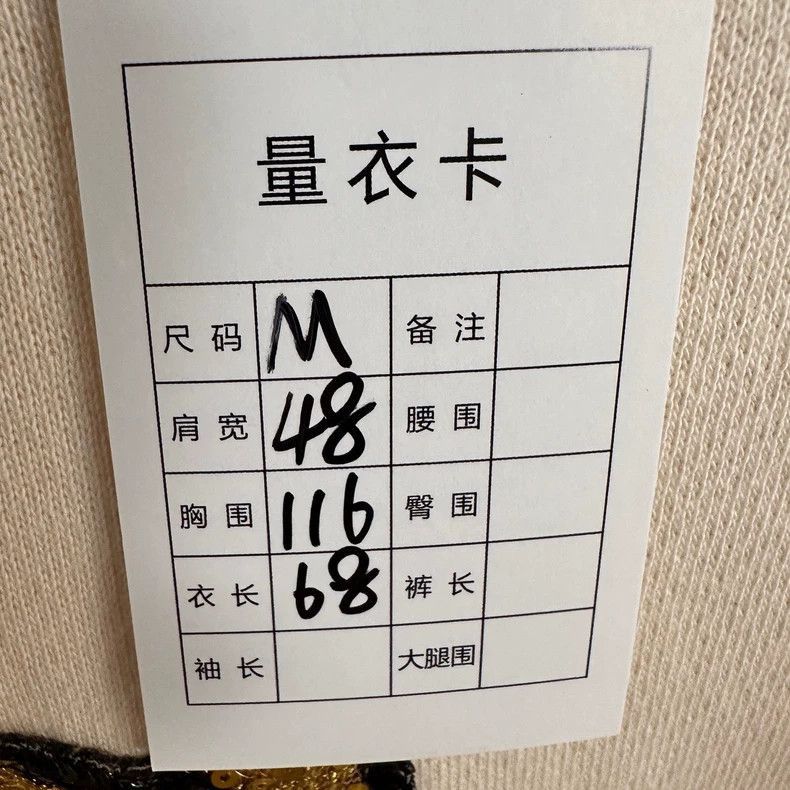 量衣卡
尺码 M 备注
肩宽 48 腰围
胸围 116 臀围
衣长 68 裤长
袖长 大腿围